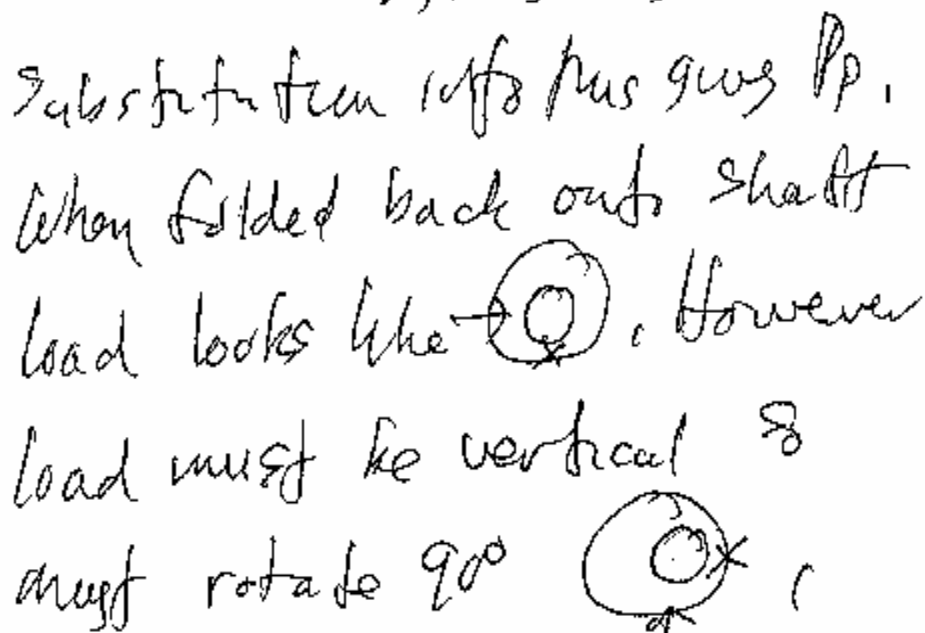 Substitution into this gives Pp.
When folded back onto shaft
load looks like . However
load must be vertical so
must rotate 90°